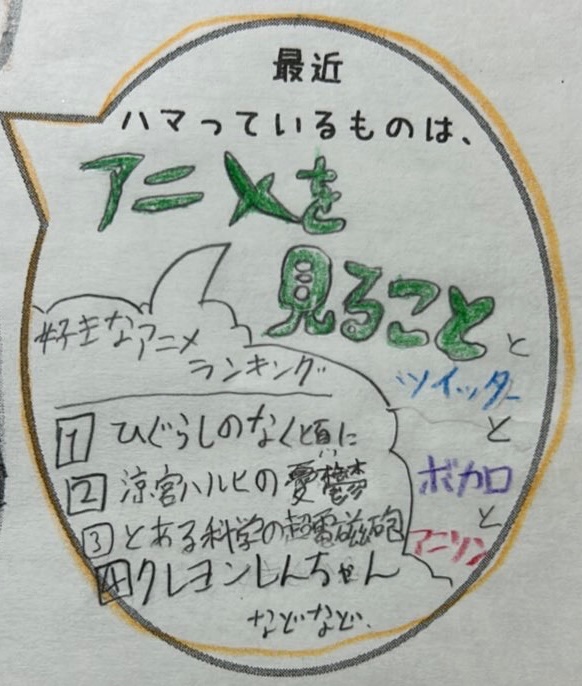 最近
ハマっているものは、
アニメを
見ること と
ツイッター
と
ボカロ
と
アニソン
好きなアニメ
ランキング
1 ひぐらしのなく頃に
2 涼宮ハルヒの憂鬱
3 とある科学の超電磁砲
4 クレヨンしんちゃん
などなど、